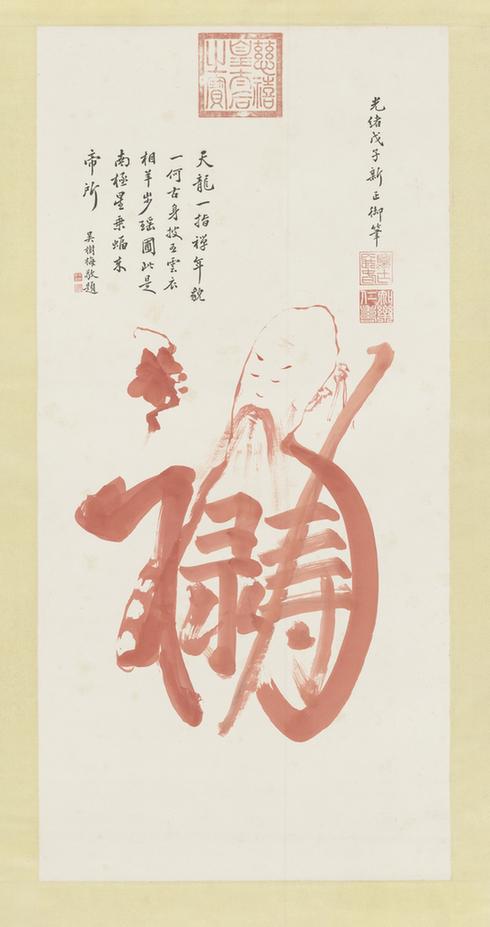 慈禧
皇太后
之寶
光緒戊子新正御筆
天龍一指禪年貌
一何古身披五雲衣
相羊步瑤圃此是
南極星乘蝠來
帝所
吳樹梅敬題
祿壽